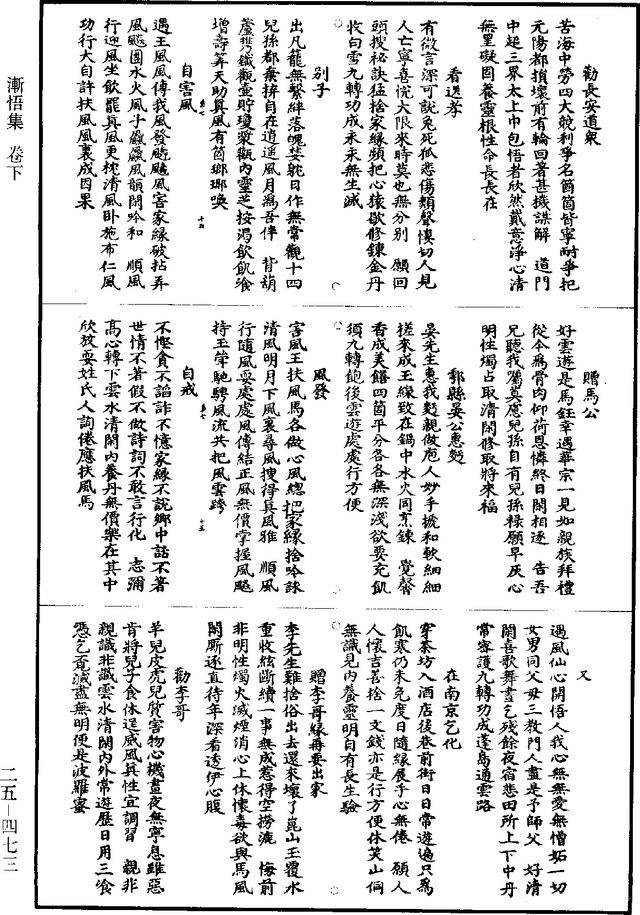 漸悟集 卷下
勸長安道衆
苦海中勞四大競利爭名箇箇皆寧耐爭把
元陽都損壞前有輪回著甚機謀解 道門
中超三界太上巾包悟者欣然戴意淨心清
無罣礙固養靈根性命長長在
看送孝
有微言深可說兔死狐悲傷類聲悽切人見
人亡寧喜悅大限來時莫也無分別 願回
頭搜祕訣猛捨家緣頻把心猿歇修鍊金丹
收白雪九轉功成永永無生滅
別子
出凡籠無繫絆落魄婪躭日作無常觀十四
兒孫都棄拚自在逍遥風月爲吾伴 背葫
蘆攜鐵觀壺貯瓊漿觀內靈芝按渴飲飢飡
增壽筭天助真風有箇瑯瑯喚
自害風
遇王風風傳我風發飈飈風害家緣破拈弄
風飈團水火風子巖巖風韻閑吟和 順風
行迎風坐飲罷真風更枕清風卧施布仁風
功行大自許扶風風裏成因果
贈馬公
好雲遊是馬鈺幸遇華宗一見如親族拜禮
從今爲骨肉仰荷恩憐終日閑相逐 告吾
兄聽我囑莫應兒孫自有兒孫祿願早灰心
明性燭占取清閑修取將來福
鄠縣晏公惠麪
晏先生惠我麪親做庖人妙手搋和軟細細
搓來成玉線致在鍋中水火同烹鍊 覺馨
香成美饍四箇平分各各無深淺欲要充飢
須九轉飽後雲遊處處行方便
風發
害風王扶風馬各做心風總把家緣捨吟詠
清風明月下風裏尋風搜得真風雅 順風
行隨風耍處處風傳結正風無價掌握風飈
持玉斝馳騁風流共把風雲跨
自戒
不慳貪不謟詐不憶家緣不說鄉中話不著
世情不著假不做詩詞不敢言行化 志彌
高心轉下雲水清閑內養丹無價樂在其中
欣放耍姓氏人詢倦應扶風馬
又
遇風仙心開悟人我心無無愛無憎妬一切
女男同父母三教門人盡是予師父 好清
閑喜歌舞晝乞殘餘夜宿悲田所上下中丹
常密護九轉功成蓬島通雲路
在南京乞化
穿茶坊入酒店後巷前街日日常遊遍只爲
飢寒仍未免度日隨緣展手心無倦 願人
人懷吉善捨一文錢亦是行方便休笑山侗
無識見內養靈明自有長生驗
贈李哥緣再要出家
李先生難捨俗出去還來壞了崑山玉覆水
重收絃斷續一事無成惹得空撈漉 悔前
非明性燭火滅煙消心上休懷毒欲與馬風
閑廝逐直待年深看透伊心腹
勸李哥
羊兒皮虎兒質害物心機晝夜無寧息雖惡
肯將兒子食休逞威風真性宜調習 親非
親識非識雲水清閑內外常遊歷日用三飡
憑乞覓滅盡無明便是波羅蜜
二五—四七三